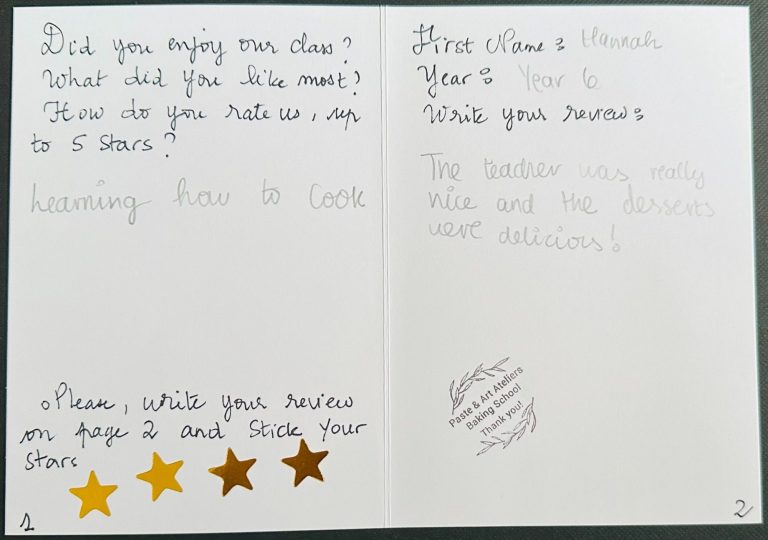 Did you enjoy our class?
What did you like most?
How do you rate us, up
to 5 stars?
Learning how to cook
Please, write your review
on page 2 and Stick your
stars
1
First Name: Hannah
Year: Year 6
Write your review:
The teacher was really
nice and the desserts
were delicious!
Paste & Art Ateliers
Baking School
Thank you!
2